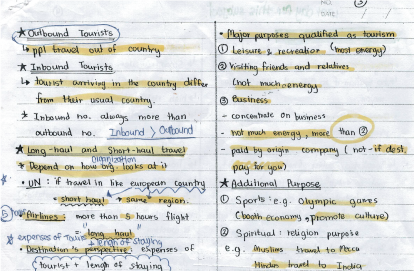 NO.
3
DATE
★ Outbound Tourists
↳ ppl travel out of country
★ Inbound Tourists
↳ tourist arriving in the country differ
from their usual country.
★ Inbound no. always more than
outbound no. Inbound > Outbound
★ Long-haul and Short-haul travel
organization
* Depend on how org. looks at it
• UN : if travel in like european country
short haul → same region.
5 Airlines : more than 5 hours flight
= long haul
* expenses of
+ length of staying
• Destination's perspective : expenses of
tourist + length of staying
• Major purposes qualified as tourism
① Leisure & recreation (most energy)
② Visiting friends and relatives
(not much energy
③ Business
- concentrate on business
- not much energy, more than ②
- paid by origin company (not if dest.
pay for you)
★ Additional Purpose
① Sports : e.g. Olympic games
(booth economy, promote culture)
② Spiritual : religion purpose
e.g. Muslims travel to Mecca
Hindus travel to India